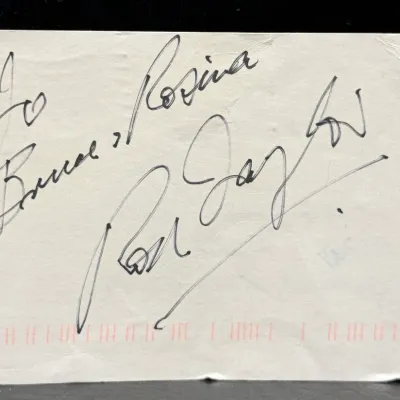 To
Bruce, Rosina
Rod Taylor